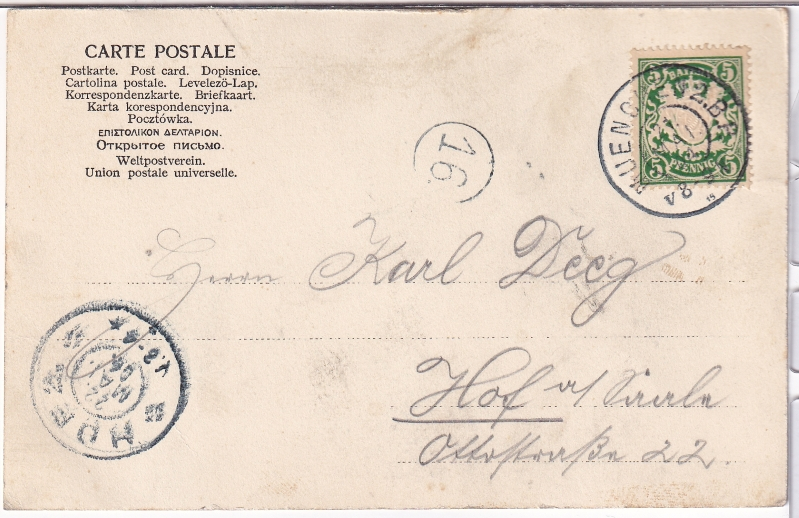 CARTE POSTALE
Postkarte. Post card. Dopisnice.
Cartolina postale. Levelező-Lap.
Korrespondenzkarte. Briefkaart.
Karta korespondencyjna.
Pocztówka.
ΕΠΙΣΤΟΛΙΚΟΝ ΔΕΛΤΑΡΙΟΝ.
Открытое письмо.
Weltpostverein.
Union postale universelle.
16
5 5
5 PFENNIG 5
Herrn Karl Deeg
Hof a/Saale
Ottostraße 22.